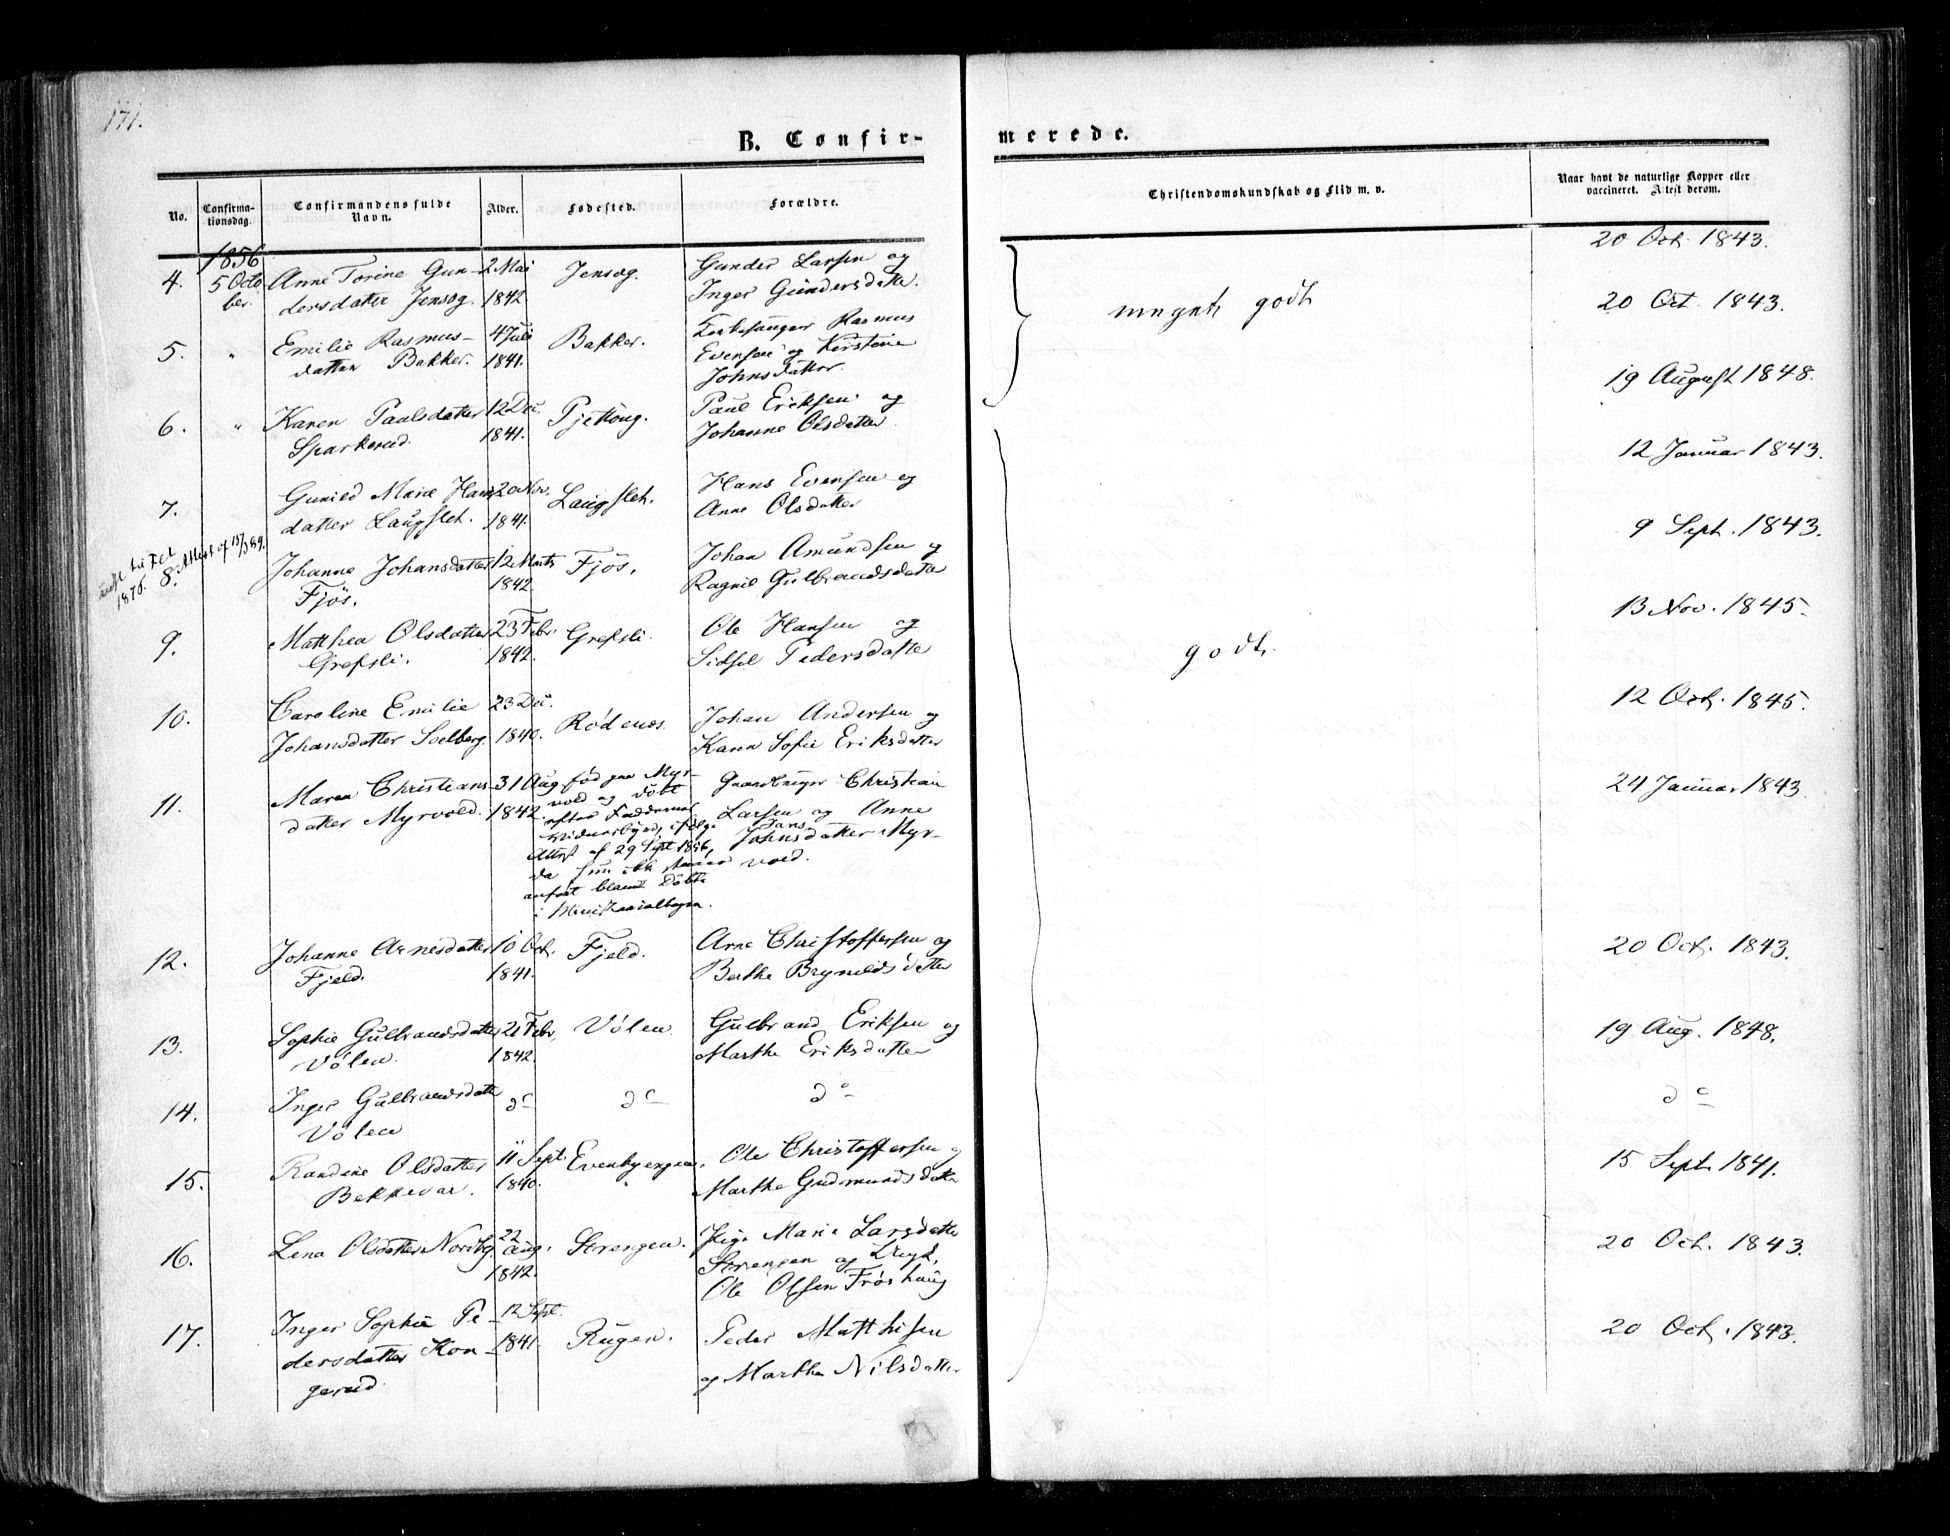 171.
B. Confir-
merede.
No.
Confirma-
tionsdag.
Confirmandens fulde
Navn.
Alder.
Fødested.
Forældre.
Christendomskundskab og Flid m. v.
Naar havt de naturlige Kopper eller
vaccineret. Attest derom.
1856
4. 5 Octo Anne Torine Gun- 2 Mai Jensøg. Gunder Larsen og 20 Oct. 1843.
ber. dersdatter Jensøg. 1842 Inger Gundersdatter.
meget godt
5. " Emilie Rasmus- 4 Juli Bakker. Kirkesanger Rasmus 20 Oct. 1843.
datter Bakker. 1841. Evensen og Kirstine
Johnsdatter.
6. " Karen Paalsdatter 12 Dec. Paul Eriksen og 19 August 1848.
Sparkerud. 1841. Johanne Olsdatter.
7. Gunild Marie Hans 20 Nov. Laugslet. Hans Evensen og 12 Januar 1843.
datter Laugslet. 1841. Anne Olsdatter
til Fet Attest af 15/3 89.
1876.
8. Johanne Johansdatter 12 Marts Fjøs. Johan Amundsen og 9 Sept. 1843.
Fjøs. 1842. Ragnil Gulbrandsdatte
9. Matthea Olsdatter 23 Febr. Grefsli. Ole Hansen og 13 Nov. 1845.
Grefsli. 1842. Sidsel Pedersdatte
godt.
10. Caroline Emilie 23 Dec. Rødenes. Johan Andersen og 12 Oct. 1845.
Johansdatter Solberg. 1840. Karen Sofie Eriksdatter
11. Maren Christians- 31 Aug født paa Myr- Gaardbruger Christian 24 Januar 1843.
datter Myrvold. 1842. vold og døbt Larsen og Anne
efter Faddernes
Vidnesbyrd, ifølge Jans
Johnsdatter Myr-
Attest af 29 Sept 1856,
da hun ikke vold.
anført blandt Døbte
i Ministerialbogen.
12. Johanne Arnesdatter 10 Oct. Fjeld. Arne Christoffersen og 20 Oct. 1843.
Fjeld. 1841. Berthe Brynildsdatter
13. Sophie Gulbrandsdatte 21 Febr. Vølen. Gulbrand Eriksen og 19 Aug. 1848.
Vølen. 1842. Marthe Eriksdatter
14. Inger Gulbrandsdatte do do do do
Vølen
15. Randine Olsdatter 11 Sept. Evenbyengen. Ole Christoffersen og 15 Sept 1841.
Bekkevar. 1840. Marthe Gudmundsdatte
16. Lena Olsdatter Nordby. 22 Strengen. Pige Marie Larsdatte 20 Oct. 1843.
Aug. Strengen og Ungk.
1842. Ole Olsen Frøshaug
17. Inger Sophie Pe- 12 Sept. Rugen. Peder Matthisen 20 Oct. 1843.
dersdatter Kon- 1841. og Marthe Nilsdatter
gerud.